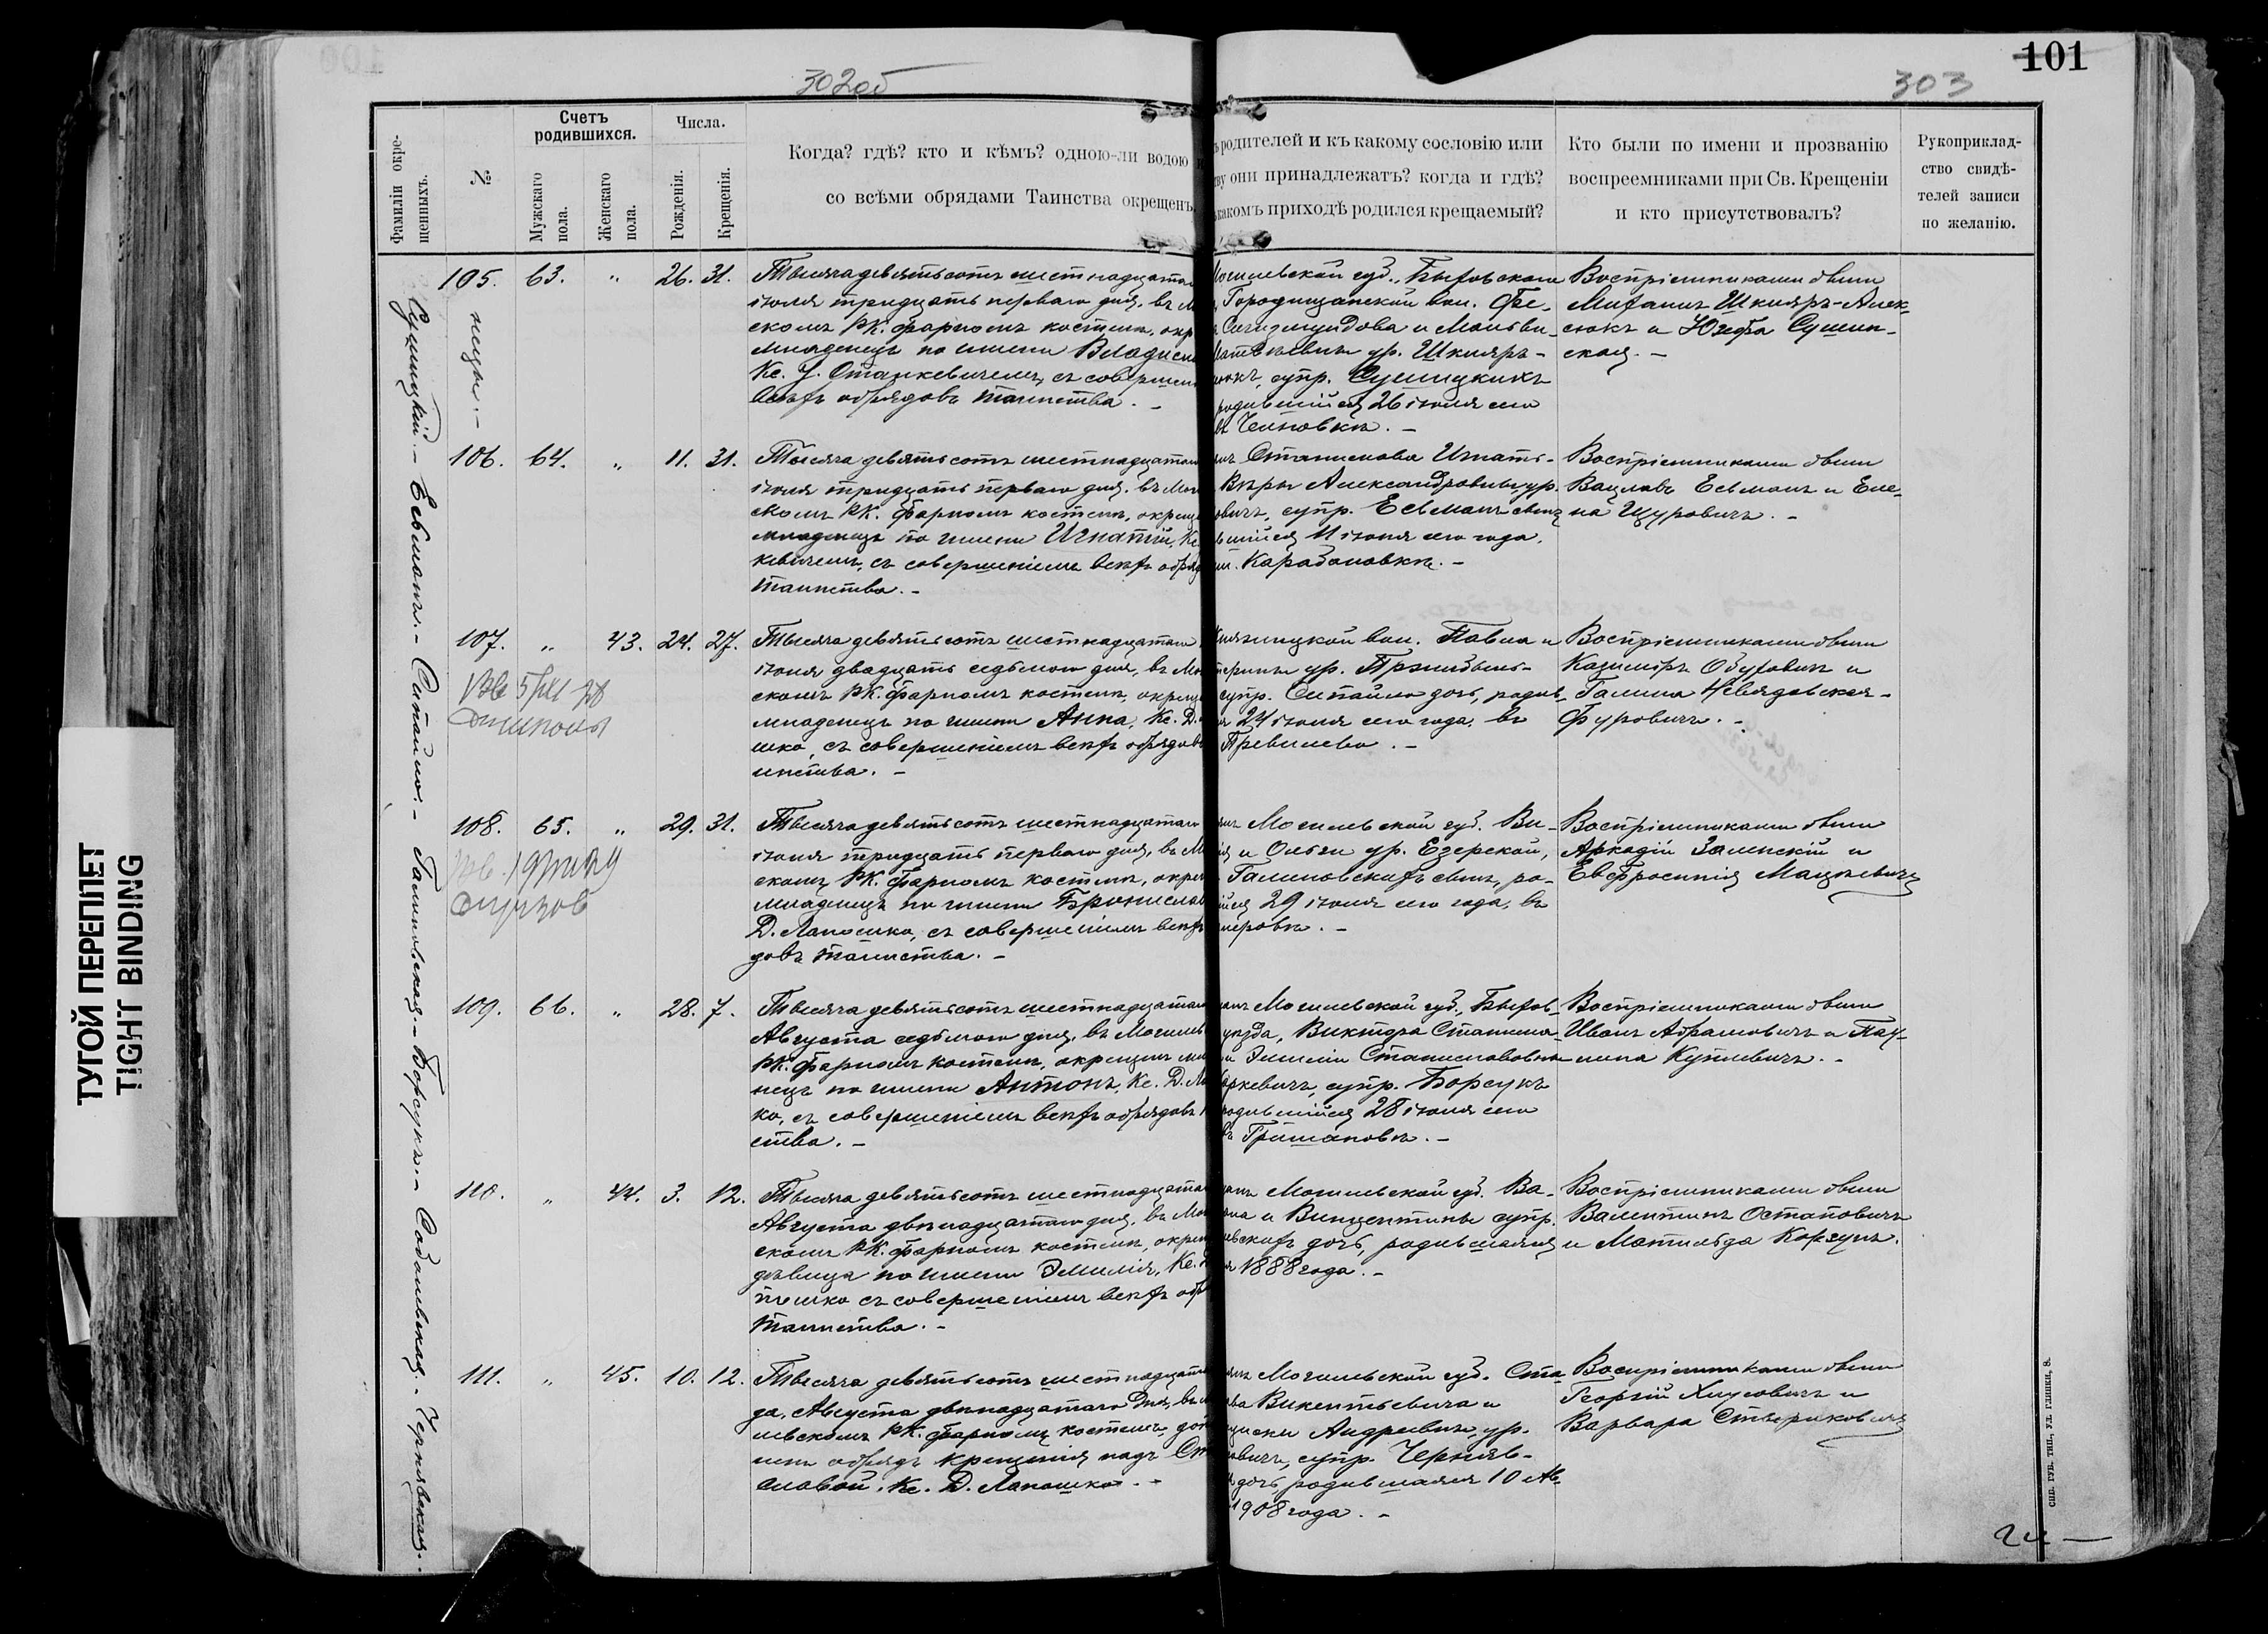 101
302об
303
ТУГОЙ ПЕРЕПЛЕТ
TIGHT BINDING
Фамиліи окре-
щенныхъ.
№
Счетъ
родившихся.
Мужскаго
пола.
Женскаго
пола.
Числа.
Рожденія.
Крещенія.
Когда? гдѣ? кто и кѣмъ? одною-ли водою и
со всѣми обрядами Таинства окрещенъ
родителей и къ какому сословію или
ву они принадлежатъ? когда и гдѣ?
какомъ приходѣ родился крещаемый?
Кто были по имени и прозванію
воспреемниками при Св. Крещеніи
и кто присутствовалъ?
Рукоприклад-
ство свидѣ-
телей записи
по желанію.
Сушицкій. - Евьманъ. - Ситайло. - Галиновская. - Борсукъ. - - Чернявская.
105. 63. " 26. 31.
Тысяча девятьсотъ шестнадцатаго
іюля тридцать перваго дня, въ М
скомъ РК. фарномъ костелѣ, окр
младенецъ по имени Владисл
Кс. У. Станкевичемъ, съ соверш
всѣхъ обрядовъ таинства. -
Могилевской губ., Быховскаго
Городищанской вол. Фе-
Сигизмундова и
ур. Шкляръ-
супр. Сушицкихъ
родившійся 26 іюля сего
въ Челновкѣ. -
Воспріемниками были
Михаилъ Шкляръ-Алек-
сюкъ и Юзефа Сушин-
ская. -
106. 64. " 11. 31.
Тысяча девятьсотъ шестнадцатаго
іюля тридцать перваго дня, въ Мог
скомъ РК. фарномъ костелѣ, окрещ
младенецъ по имени Игнатій, Кс.
кевичемъ, съ совершеніемъ всѣхъ обряд
таинства. -
Станислава Игнать-
Вѣры Александровны ур.
овичъ, супр. Евьманъ сынъ
вшійся 11 іюля сего года,
Карабановкѣ. -
Воспріемниками были
Вацлавъ Евьманъ и Еле-
на Щуровичъ. -
107. " 43. 24. 27.
Тысяча девятьсотъ шестнадцатаго
іюля двадцать седьмого дня, въ Мо
скомъ РК. фарномъ костелѣ, окрещ
младенецъ по имени Анна, Кс. Д.
шко, съ совершеніемъ всѣхъ обрядовъ
инства. -
вол. Павла и
ерины ур.
супр. Ситайло дочь, родив
24 іюля сего года, въ
Воспріемниками были
Казиміръ Обуховичъ и
Галина Невядовская-
Фуровичъ. -
108. 65. " 29. 31.
Тысяча девятьсотъ шестнадцатаго
іюля тридцать перваго дня, въ М
скомъ РК. фарномъ костелѣ, окрещ
младенецъ по имени Бронислав
Д. Лапошко, съ совершеніемъ всѣхъ
довъ таинства. -
Могилевской губ. Ви-
и Ольги ур. Езерской,
Галиновскихъ сынъ, ро-
29 іюля сего года, въ
Воспріемниками были
Аркадій Залинскій и
Евфросинія Мацкевичъ
109. 66. " 28. 7.
Тысяча девятьсотъ шестнадцатаго
Августа седьмого дня, въ Могилев
РК. фарномъ костелѣ, окрещенъ мл
нецъ по имени Антонъ, Кс. Д. Ла
ко, съ совершеніемъ всѣхъ обрядовъ
ства. -
Могилевской губ., Быхов-
уѣзда, Виктора Станисла-
Эмиліи Станиславовны
супр. Борсукъ
родившійся 28 іюля сего
въ Гришановкѣ. -
Воспріемниками были
Иванъ Абрамовичъ и Пау-
лина Кутлевичъ. -
110. " 44. 3. 12.
Тысяча девятьсотъ шестнадцатаго
Августа двѣнадцатаго дня, въ Мо
скомъ РК. фарномъ костелѣ, окрещ
дѣвица по имени Эмилія, Кс.
пошко съ совершеніемъ всѣхъ обр
таинства. -
Могилевской губ. Ва-
и Винцентины супр.
вскихъ дочь, родившаяся
1888 года. -
Воспріемниками были
Валентинъ Остаповичъ
и Матильда Корзунъ.
111. " 45. 10. 12.
Тысяча девятьсотъ шестнадцатаго
да, Августа двѣнадцатаго дня, въ М
левскомъ РК. фарномъ костелѣ, доп
ненъ обрядъ крещенія надъ Ст
славой, Кс. Д. Лапошко. -
Могилевской губ. Ста
ва Викентьевича и
Андреевны ур.
овичъ, супр. Черняв-
дочь, родившаяся 10 Ав
1908 года. -
Воспріемниками были
Георгій Хлусовичъ и
Варвара
СПБ. ГУБ. ТИП., УЛ. ГЛИНКИ, 8.